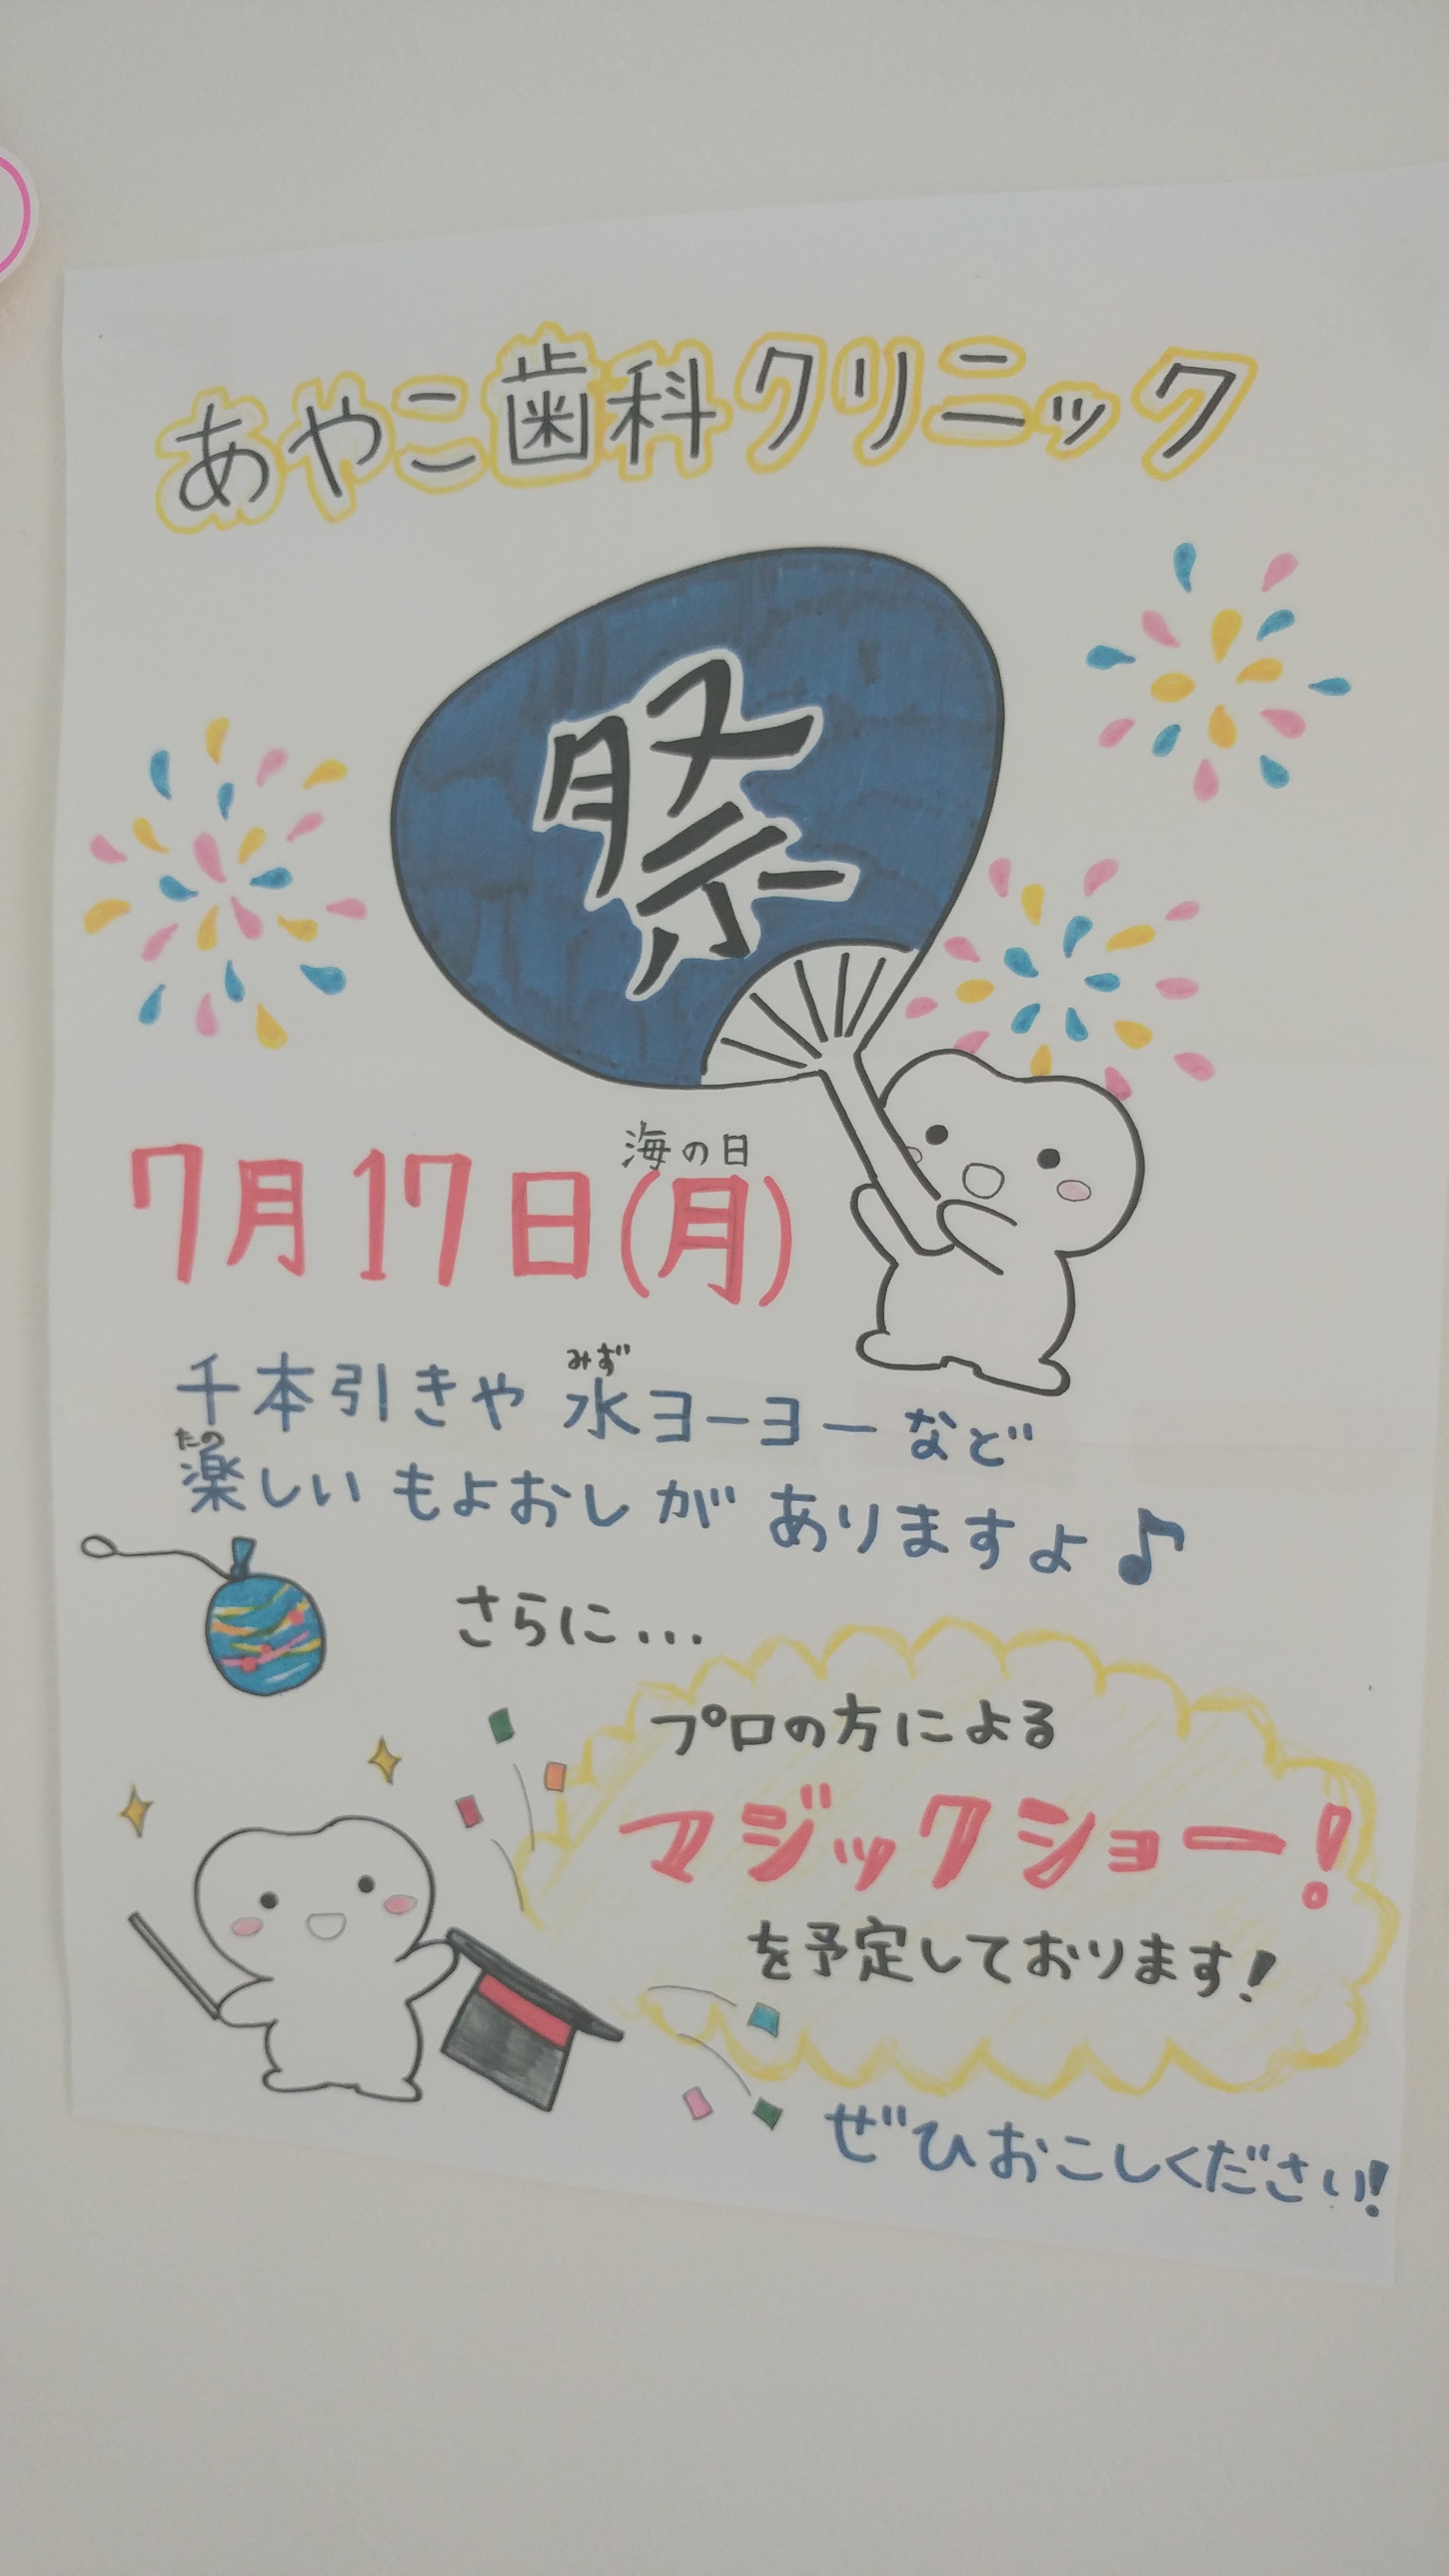 あやこ歯科クリニック
祭
海の日
7月17日(月)
みず
千本引きや水ヨーヨーなど
たの
楽しいもよおしがありますよ♪
さらに...
プロの方による
マジックショー!
を予定しております!
ぜひおこしください!